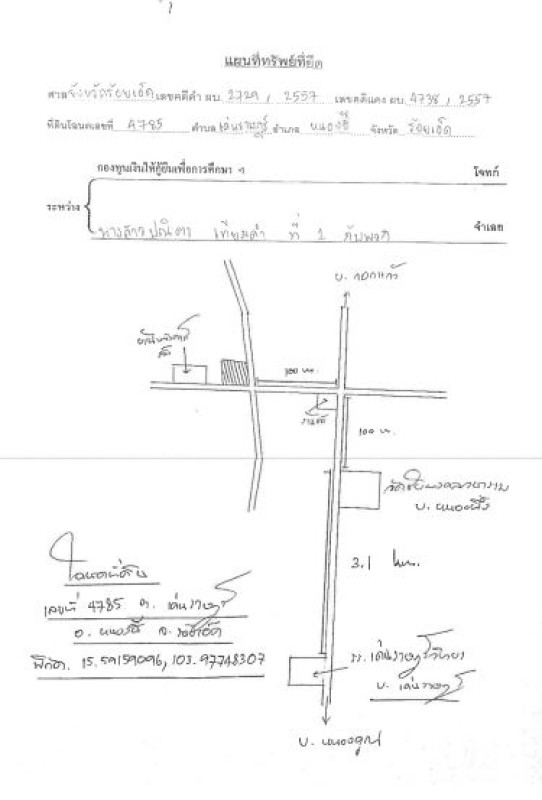 แผนที่ทรัพย์ที่ยึด
ศาลจังหวัดร้อยเอ็ด เลขคดีดำ ผบ. 2729 / 2557 เลขคดีแดง ผบ. 4738 / 2557
ที่ดินโฉนดเลขที่ 4785 ตำบล เด่นราษฎร์ อำเภอ หนองฮี จังหวัด ร้อยเอ็ด
กองทุนเงินให้กู้ยืมเพื่อการศึกษา ฯ โจทก์
ระหว่าง
นางสาวปณิตา เทียมคำ ที่ 1 กับพวก จำเลย
บ. กอกแก้ว
100 ม.
ร้านค้า
100 ม.
บ. หนองผือ
3.1 กม.
โฉนดที่ดิน
เลขที่ 4785 ต. เด่นราษฎร์
อ. หนองฮี จ. ร้อยเอ็ด
พิกัด. 15.59159096, 103.97748307
รร. เด่นราษฎร์วิทยา
บ. เด่นราษฎร์